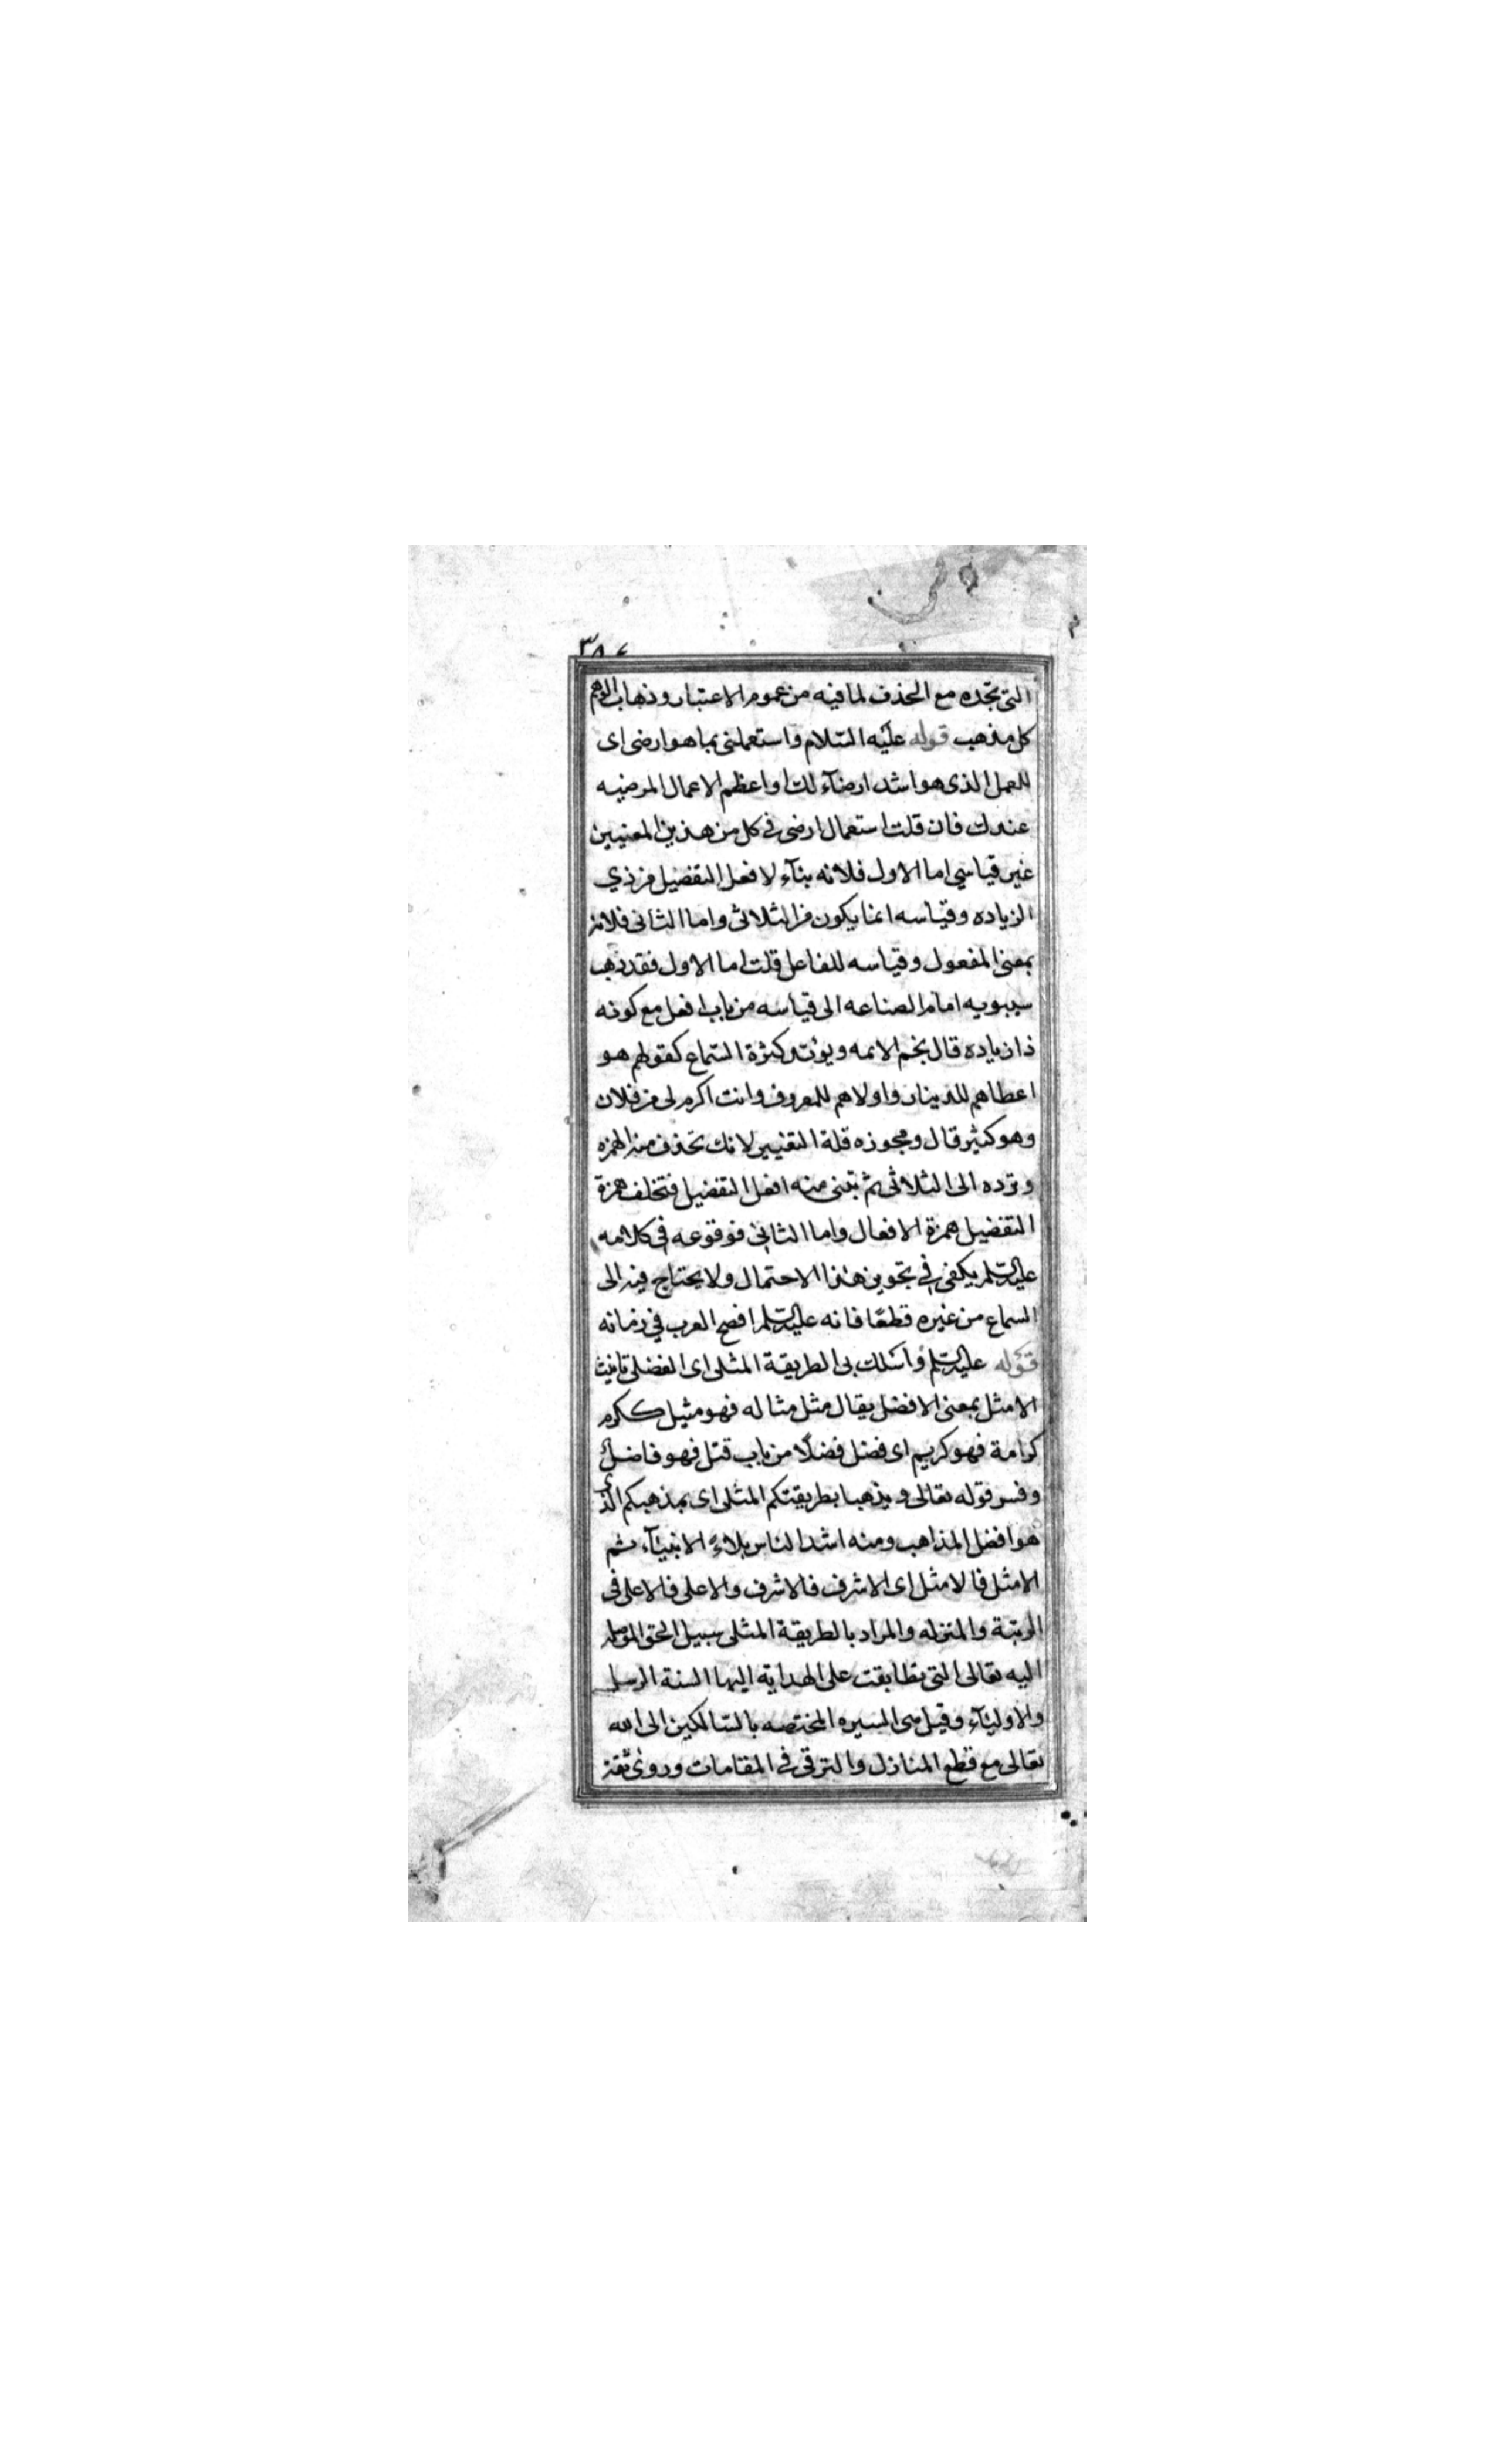 التى تجده مع الحذف لما فيه من عموم الاعتبار وذهاب الوهم
كل مذهب قوله عليه السلام واستعملنى بما هو ارضى اى
للعمل الذى هو اشد ارضآء لك او اعظم الاعمال المرضيه
عندك فان قلت استعمال ارضى فى كل من هذين المعنيين
غير قياسي اما الاول فلانه بنآء لافعل التفضيل من ذي
الزياده وقياسه انما يكون من الثلاثى واما الثانى فلانه
بمعنى المفعول وقياسه للفاعل قلت اما الاول فقد ذهب
سيبويه امام الصناعه الى قياسه من باب افعل مع كونه
ذا زياده قال نجم الائمه ويؤيده كثرة السماع كقولهم هو
اعطاهم للدينار واولاهم للمعروف وانت اكرم لى من فلان
وهو كثير قال ومجوزه قلة التغيير لانك تحذف منه الهمزه
وترده الى الثلاثى ثم تبنى منه افعل التفضيل فتخلف همزة
التفضيل همزة الافعال واما الثانى فوقوعه فى كلامه
عليه السلم يكفى فى تجويز هذا الاحتمال ولا يحتاج فيه الى
السماع من غيره قطعًا فانه عليه السلم افصح العرب في زمانه
قوله عليه السلم واسلك بى الطريقة المثلى اى الفضلى تانيث
الامثل بمعنى الافضل يقال مثل مثاله فهو مثيل ككرم
كرامة فهو كريم اى فضل فضلًا من باب قتل فهو فاضل
وفسر قوله تعالى ويذهبا بطريقتكم المثلى اى بمذهبكم الذى
هو افضل المذاهب ومنه اشد الناس بلاءً الانبيآء ثم
الامثل فالامثل اى الاشرف فالاشرف والاعلى فالاعلى فى
الرتبة والمنزله والمراد بالطريقة المثلى سبيل الحق الموصله
اليه تعالى التى تطابقت على الهداية اليها السنة الرسل
والاوليآء وقيل هى السيره المختصه بالسالكين الى الله
تعالى مع قطع المنازل والترقى فى المقامات وروى ثقة